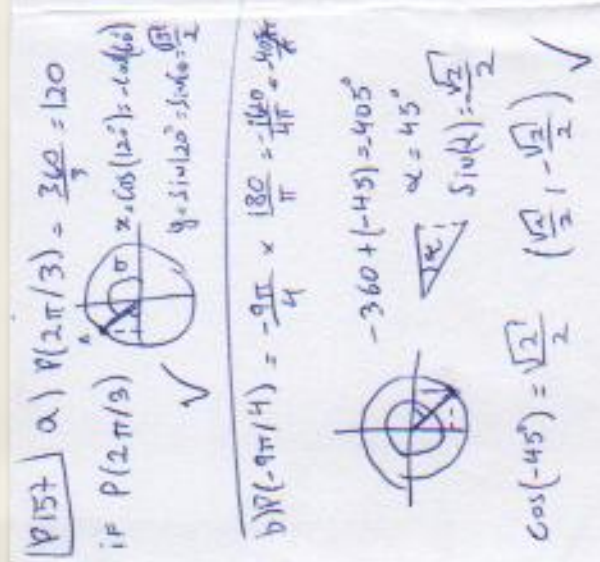 P157 a) P(2π/3) = 360/3 = 120
if P(2π/3) x = cos(120°) = -cos(60)
y = sin120° = sin60 = √3/2
b) P(-9π/4) = -9π/4 × 180/π = -1620/4π
-360+(-45) = -405°
α = 45°
Sin(α) = -√2/2
cos(-45°) = √2/2 (√2/2, -√2/2)